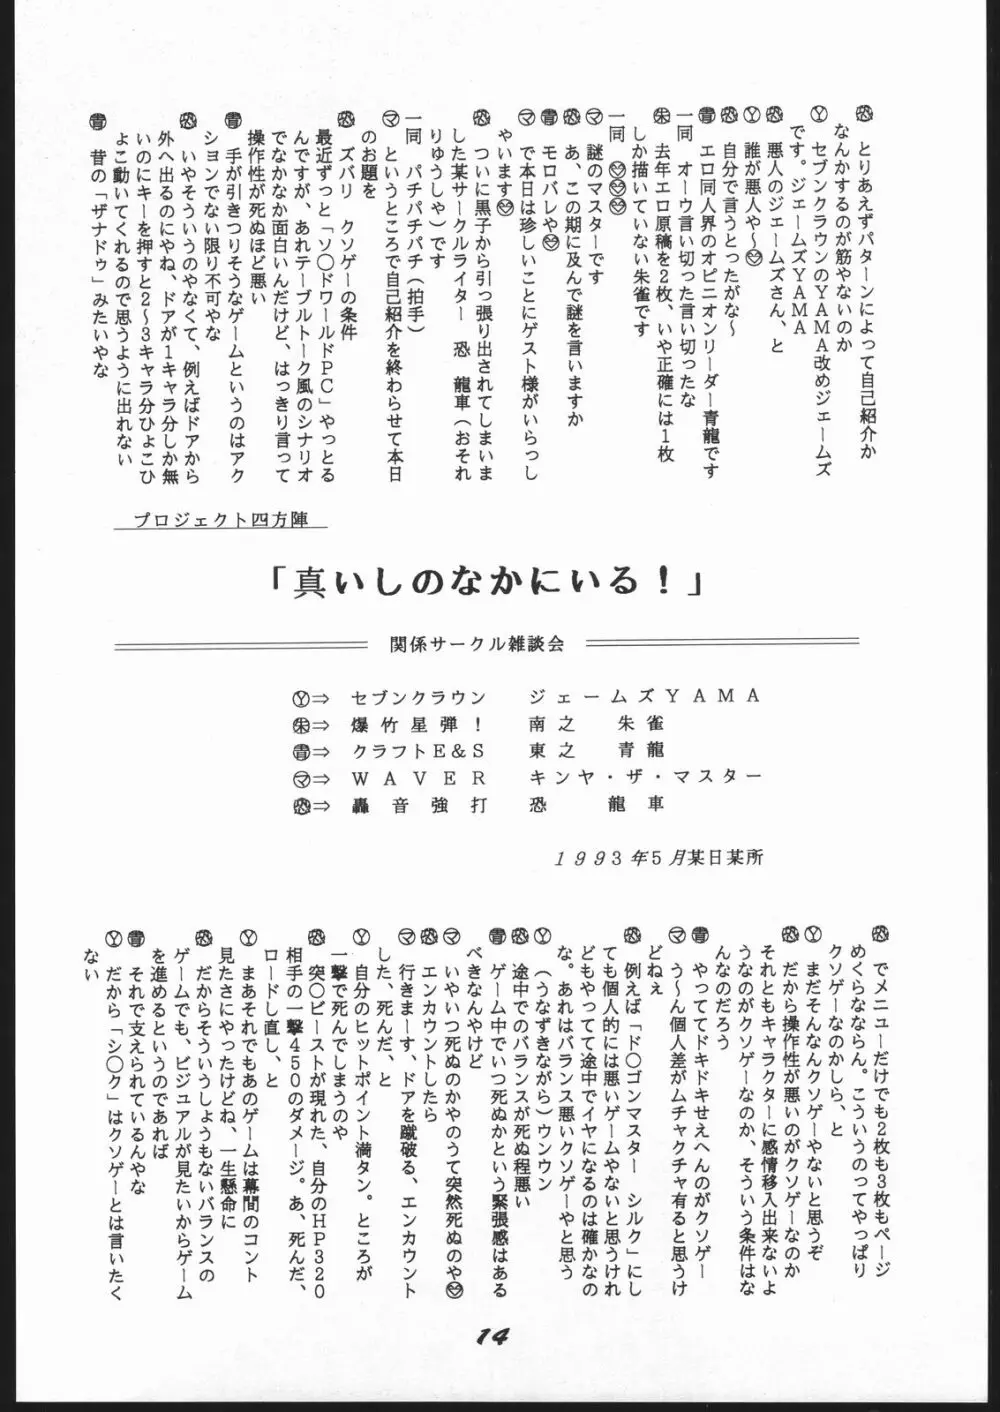 恐　とりあえずパターンによって自己紹介か
なんかするのが筋やないのか
Ⓨ　セブンクラウンのYAMA改めジェームズ
です。ジェームズYAMA
恐　悪人のジェームズさん、と
Ⓨ　誰が悪人や〜
恐　自分で言うとったがな〜
青　エロ同人界のオピニオンリーダー青龍です
一同　オーウ言い切った言い切ったな
朱　去年エロ原稿を2枚、いや正確には1枚
しか描いていない朱雀です
一同
マ　謎のマスターです
恐　あ、この期に及んで謎を言いますか
青　モロバレや
マ　で本日は珍しいことにゲスト様がいらっし
ゃいます
恐　ついに黒子から引っ張り出されてしまいま
した某サークルライター　恐　龍車（おそれ
りゅうしゃ）です
一同　パチパチパチ（拍手）
マ　というところで自己紹介を終わらせて本日
のお題を
恐　ズバリ　クソゲーの条件
最近ずっと「ソ〇ドワールドPC」やっとる
んですが、あれテーブルトーク風のシナリオ
でなかなか面白いんだけど、はっきり言って
操作性が死ぬほど悪い
青　手が引きつりそうなゲームというのはアク
ションでない限り不可やな
恐　いやそういうのやなくて、例えばドアから
外へ出るのにやね、ドアが1キャラ分しか無
いのにキーを押すと2〜3キャラ分ひょこひ
ょこ動いてくれるので思うように出れない
青　昔の「ザナドゥ」みたいやな
プロジェクト四方陣
「真いしのなかにいる！」
関係サークル雑談会
Ⓨ⇒　セブンクラウン　ジェームズYAMA
朱⇒　爆竹星弾！　南之　朱雀
青⇒　クラフトE&S　東之　青龍
マ⇒　WAVER　キンヤ・ザ・マスター
恐⇒　轟音強打　恐　龍車
1993年5月某日某所
恐　でメニューだけでも2枚も3枚もページ
めくらなならん。こういうのってやっぱり
クソゲーなのかしら、と
Ⓨ　まだそんなんクソゲーやないと思うぞ
恐　だから操作性が悪いのがクソゲーなのか
それともキャラクターに感情移入出来ないよ
うなのがクソゲーなのか、そういう条件はな
んなのだろう
青　やっててドキドキせえへんのがクソゲー
マ　う〜ん個人差がムチャクチャ有ると思うけ
どねぇ
恐　例えば「ド〇ゴンマスター　シルク」にし
ても個人的には悪いゲームやないと思うけれ
どもやってて途中でイヤになるのは確かなの
な。あれはバランス悪いクソゲーやと思う
Ⓨ　（うなずきながら）ウンウン
恐　途中でのバランスが死ぬ程悪い
青　ゲーム中でいつ死ぬかという緊張感はある
べきなんやけど
マ　いやいつ死ぬのかやのうて突然死ぬのや
恐　エンカウントしたら
マ　行きまーす、ドアを蹴破る、エンカウント
した、死んだ、と
Ⓨ　自分のヒットポイント満タン。ところが
一撃で死んでしまうのや
恐　突〇ビーストが現れた、自分のHP320
相手の一撃450のダメージ。あ、死んだ、
ロードし直し、と
Ⓨ　まあそれでもあのゲームは幕間のコント
見たさにやったけどね、一生懸命に
恐　だからそういうしょうもないバランスの
ゲームでも、ビジュアルが見たいからゲーム
を進めるというのであれば
青　それで支えられているんやな
Ⓨ　だから「シ〇ク」はクソゲーとは言いたく
ない
14